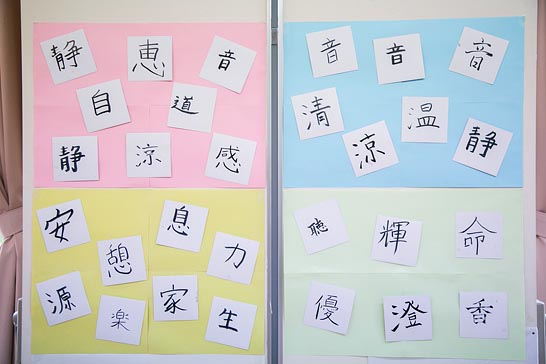 静 恵 音
自 道
静 涼 感
音 音 音
清 温
涼 静
安 憩 息 力
源 楽 家 生
聴 輝 命
優 澄 香